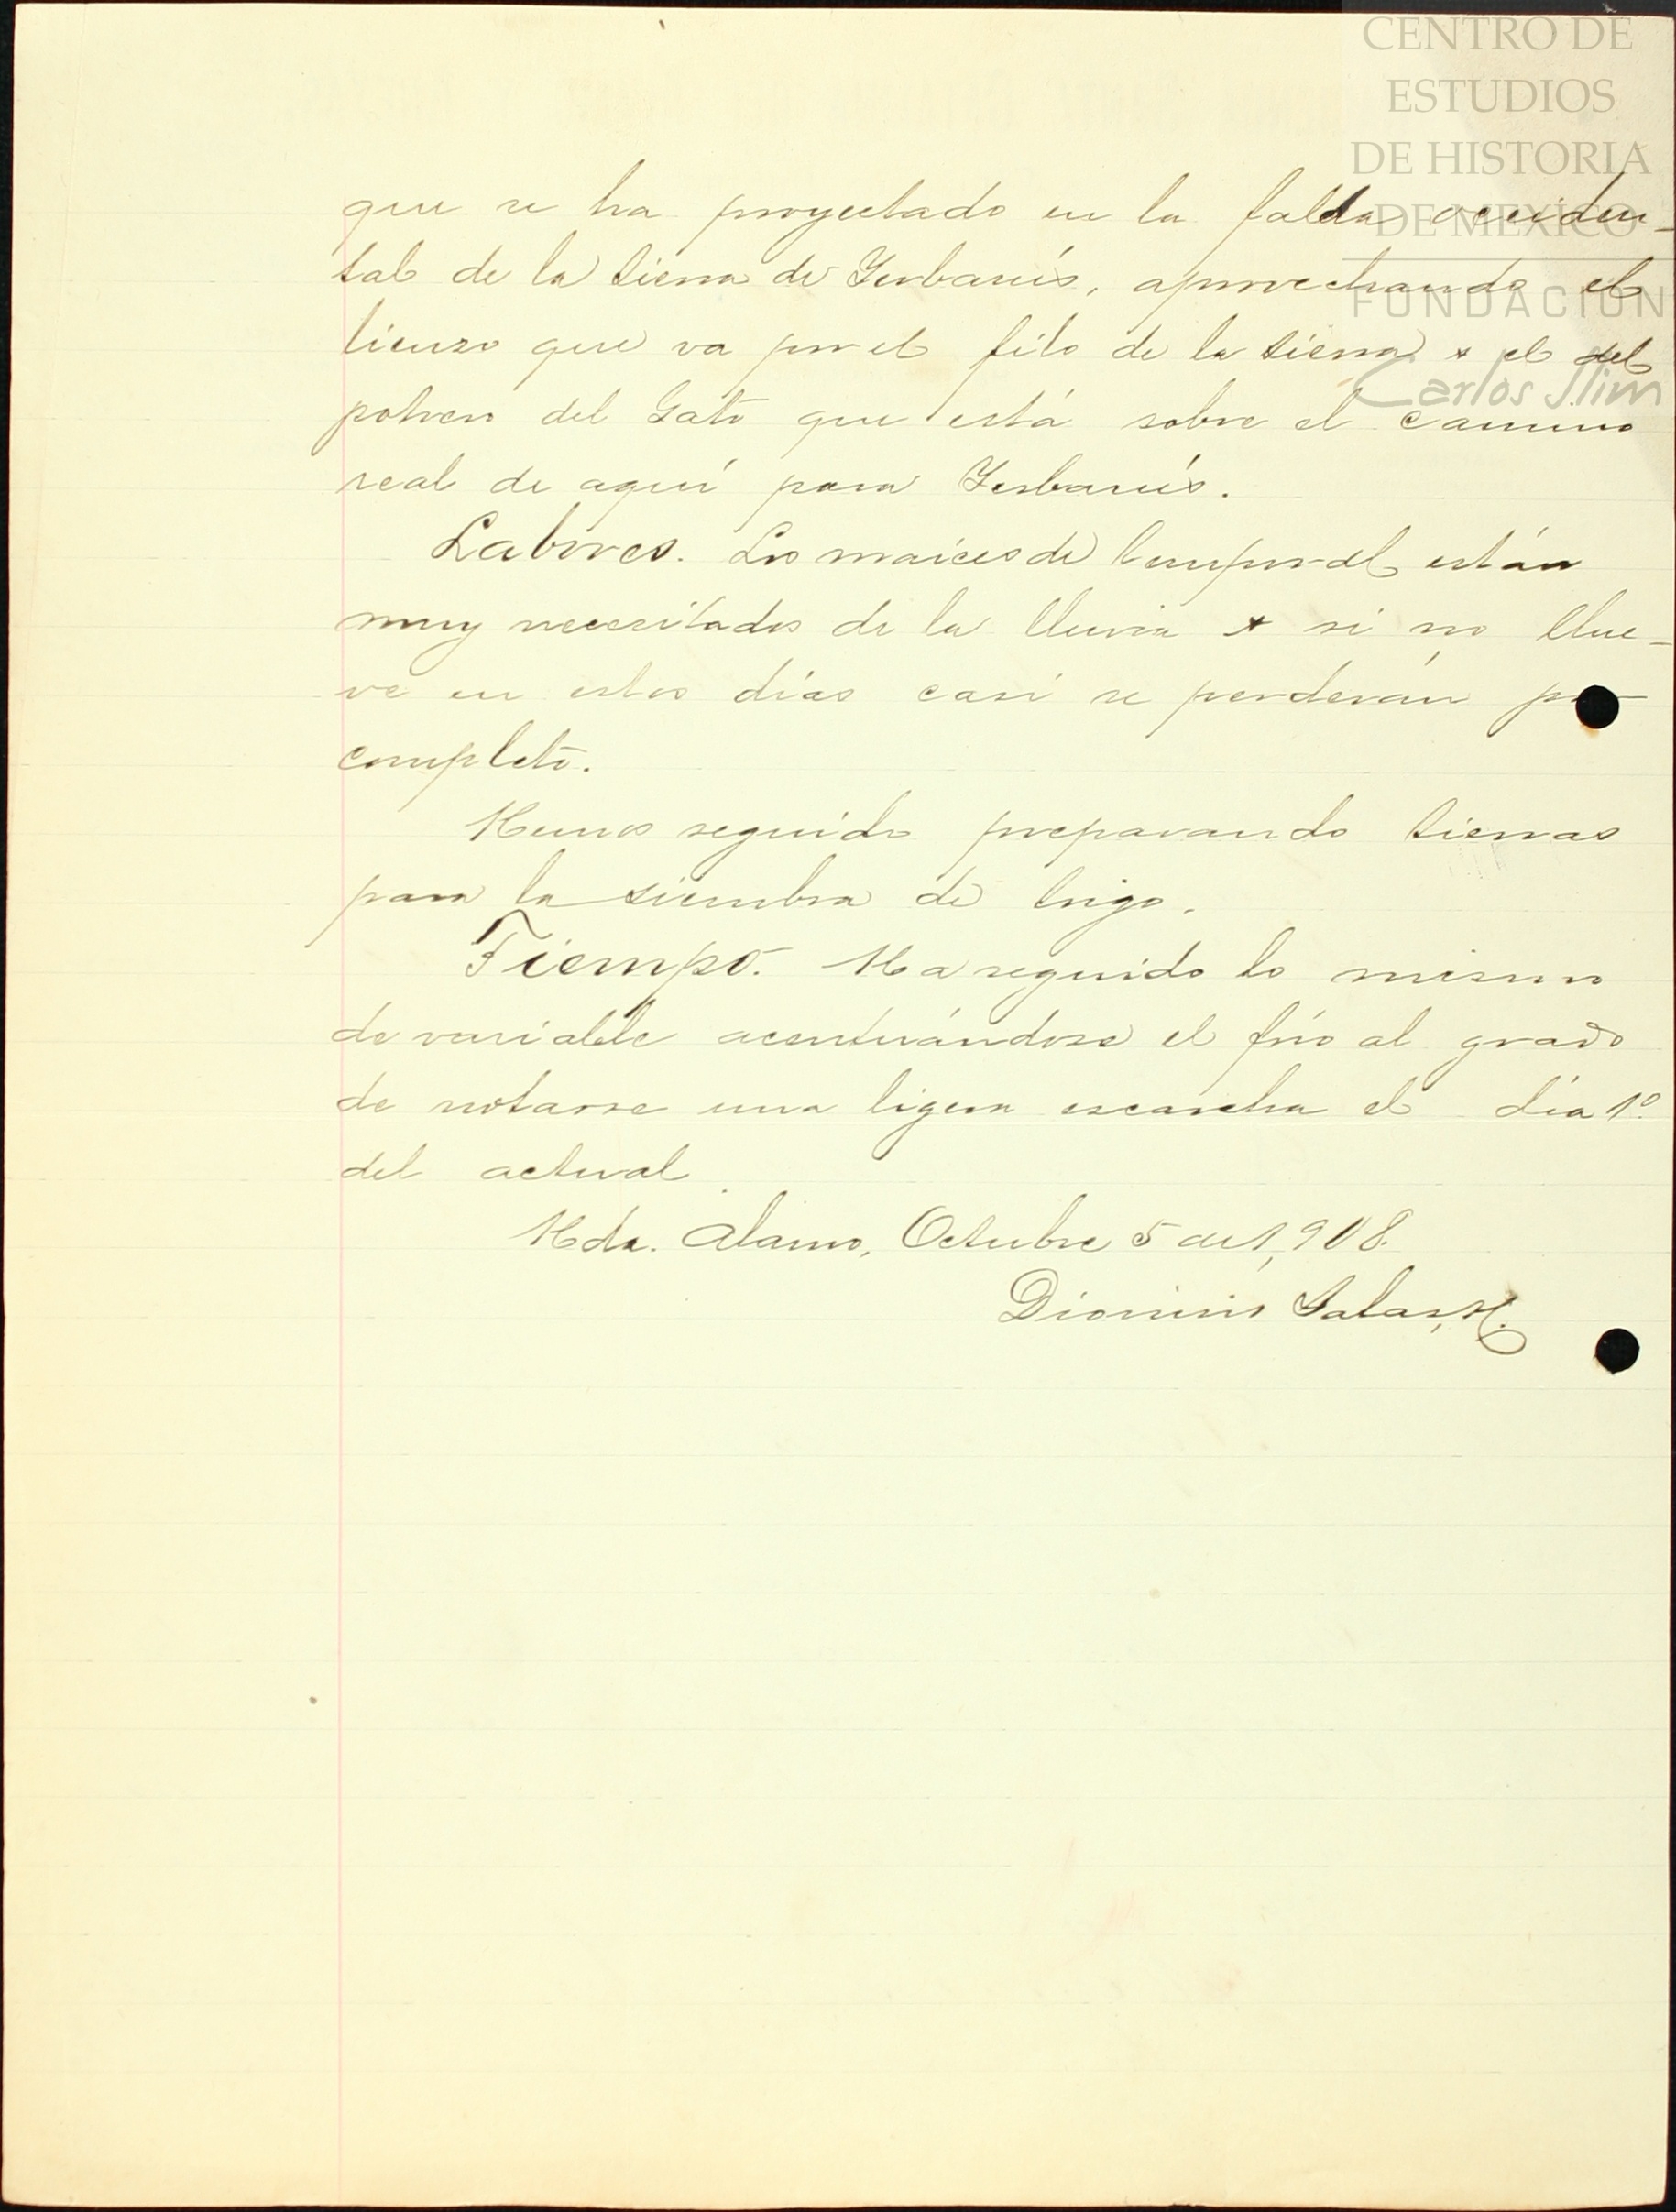 CENTRO DE
ESTUDIOS
DE HISTORIA
DE MEXICO
FUNDACIÓN
Carlos Slim
que se ha proyectado en la falda occiden-
tal de la Sierra de Yerbanís, aprovechando el
lienzo que va por el filo de la sierra y el del
potrero del Gato que está sobre el camino
real de aquí para Yerbanís.
Labores. Los maíces de temporal están
muy necesitados de la lluvia y si no llue-
ve en estos días casi se perderán por
completo.
Hemos seguido preparando tierras
para la siembra de trigo.
Tiempo. Ha seguido lo mismo
de variable acentuándose el frío al grado
de notarse una ligera escarcha el día 1º.
del actual.
Hda. Alamo, Octubre 5 de 1,908.
Dionisio Salas, H.